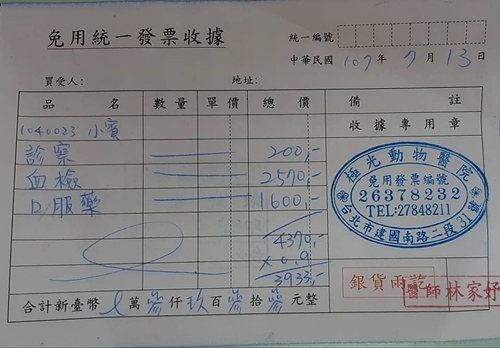 免用統一發票收據
統一編號
中華民國 107 年 7 月 13 日
買受人: 地址:
品 名 數量 單價 總價 備 註
1040023 小賓 收據專用章
診察 200,-
血檢 2570,-
口服藥 1600,-
4370,-
x 0.9
3933,-
極光動物醫院
免用發票編號
26378232
TEL:27848211
台北市建國南路二段31號
銀貨兩訖
醫師林家妤
合計新臺幣 萬 參 仟 玖 百 參 拾 參 元整